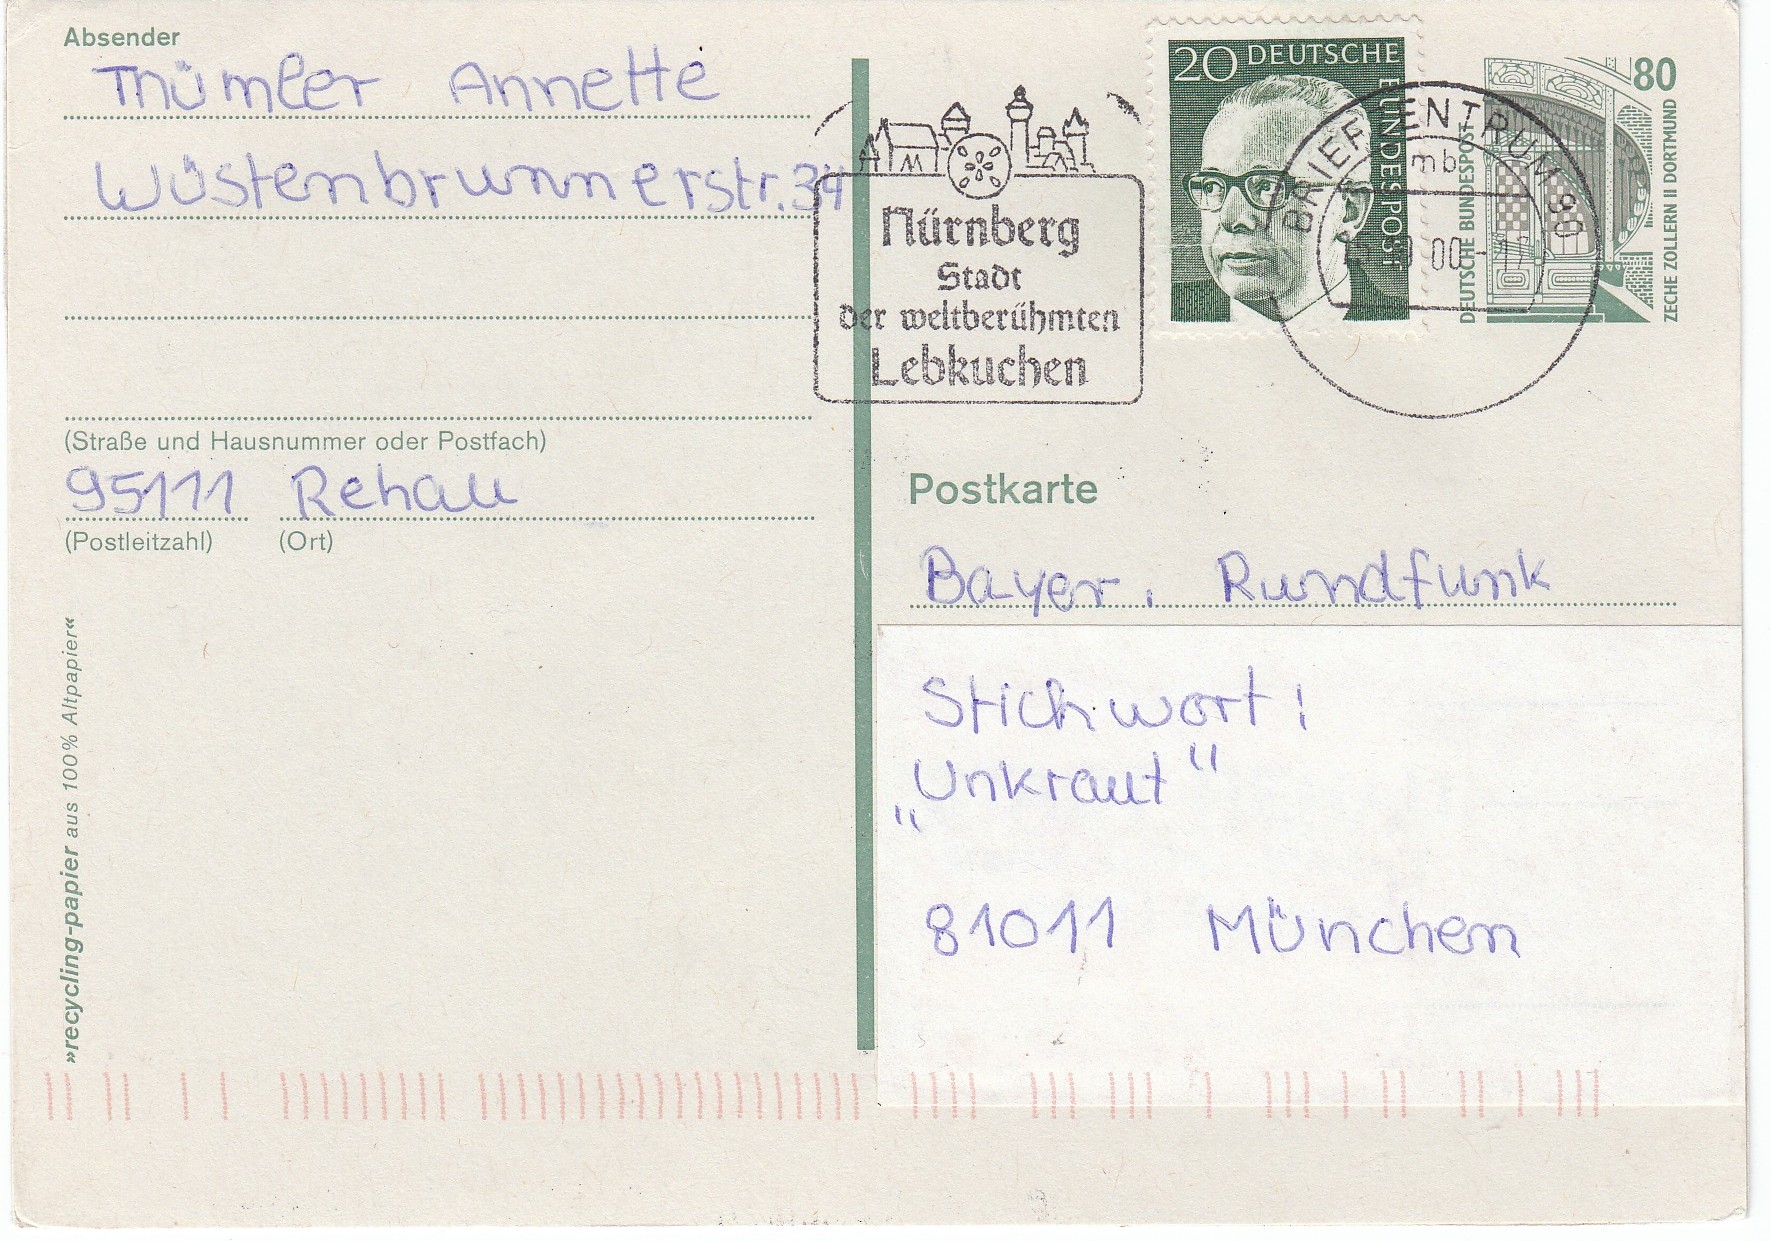 Absender
Thümler Annette
Wüstenbrunnnerstr. 34
(Straße und Hausnummer oder Postfach)
95111 Rehau
(Postleitzahl) (Ort)
»recycling-papier aus 100% Altpapier«
Nürnberg
Stadt
der weltberühmten
Lebkuchen
20 DEUTSCHE BUNDESPOST
BRIEFZENTRUM 90
mb
00-17
80
DEUTSCHE BUNDESPOST
ZECHE ZOLLERN II DORTMUND
Postkarte
Bayer. Rundfunk
Stichwort:
„Unkraut“
81011 München